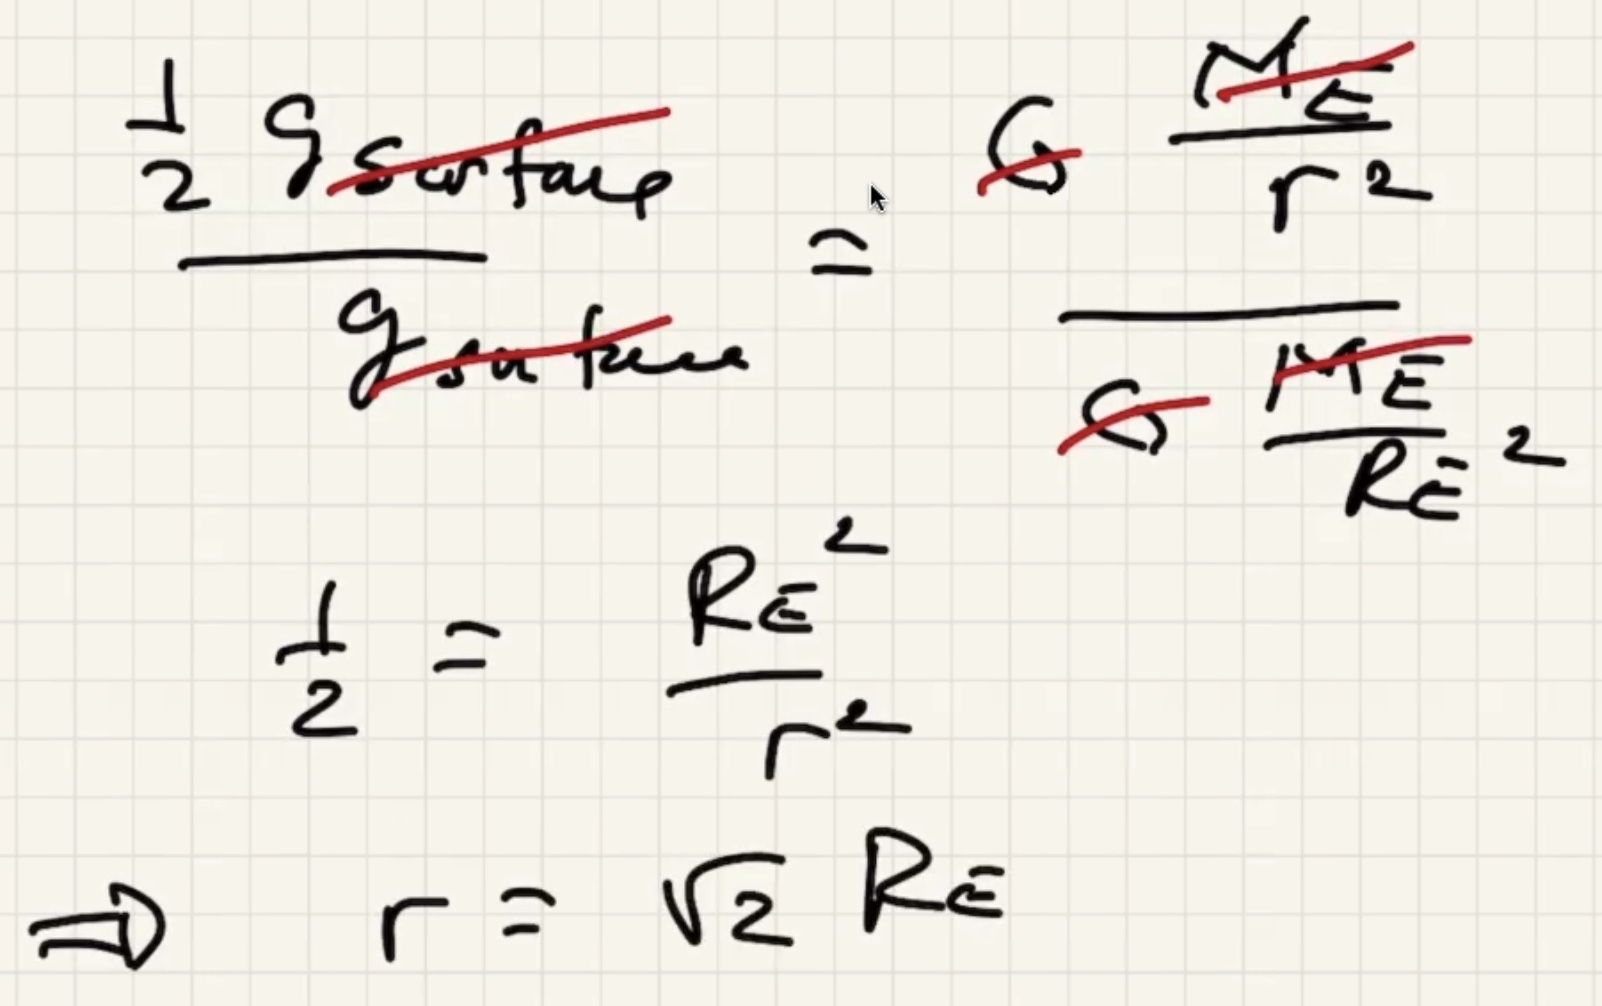 1/2 g surface / g surface = G M_E/r² / G M_E/R_E²
1/2 = R_E²/r²
⇒ r = √2 R_E